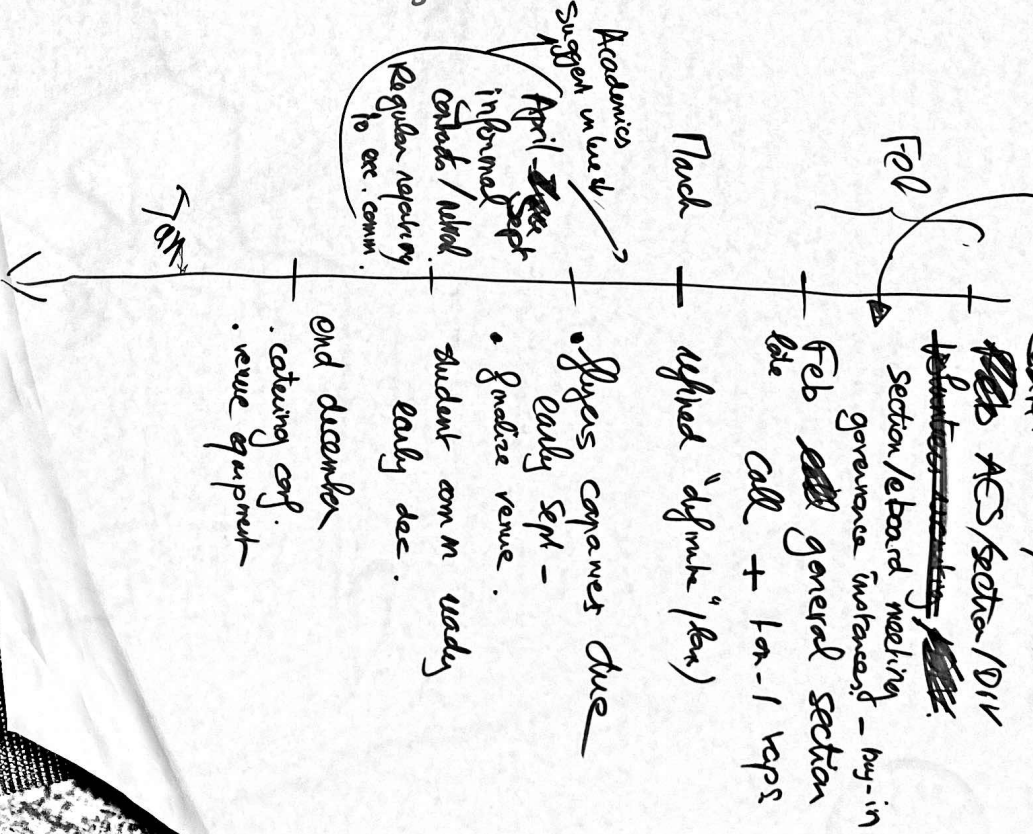 Feb
ACS/section/DIV
section/eboard meeting
governance "instances" - buy-in
Feb general section
late call + 1-on-1
March
refined "definite" plan)
Academics
suggest
April - Sept
informal
contacts /
Regular
to exc. comm.
• flyers due
early sept -
• finalize venue.
student comm ready
early dec.
end december
. catering conf.
. venue equipment
Jan